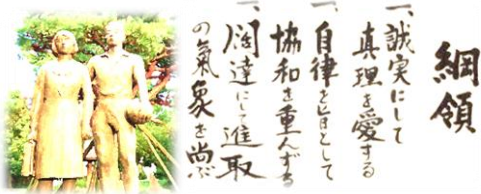 綱領
一、誠実にして
真理を愛する
一、自律を旨として
協和を重んずる
一、闊達にして進取
の氣象を尚ぶ